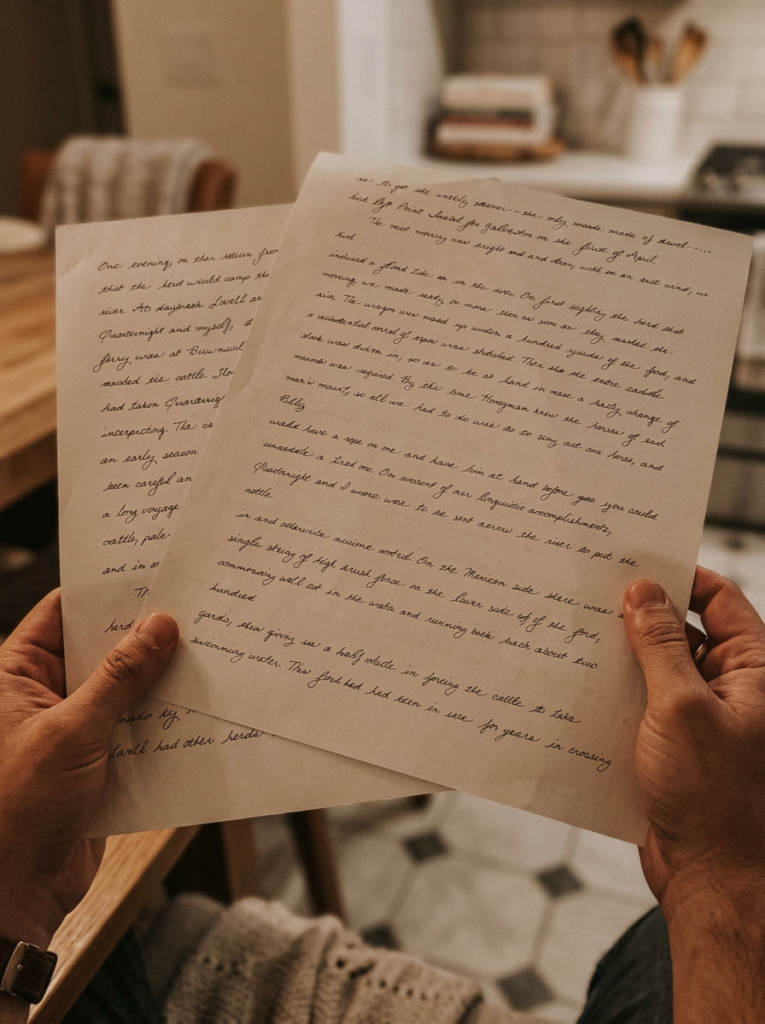 One evening, on their return from
that the herd would camp the
river. At daybreak Lovell an
Quarternight and myself, s
ferry was at Brownsvil
reached the cattle. Flo
had taken Quarternigh
interpreting. The ca
an early season
been careful an
a long voyage
cattle, pale
and in
Th
herd
made by
Lovell had other herds
as to get the weekly steamer—the only made made of travel-....
had Point Isabel for Galveston on the first of April.
The next morning was bright and and clear, with an an east wind, in
had
induced a flood tide on in the river. On first sighting the herd that
morning, we made ready in more than as soon as they reached the.
river. The wagon was moved up within a hundred yards of the ford, and
a corral of ropes was stretched. Then the the entire saddle
stock was driven in, so as to be at hand in case a hasty change of
mounts was required. By the time Honeyman knew the horses of each
man's mount, so all we had to do was do to sing out one horse, and
Billy
would have a rope on one and have him at hand before you you could
unsaddle a tired one. On account of our linguistic accomplishments,
Quarternight and I were were to be sent across the river to put the
cattle
in and otherwise assume control. On the Mexican side there was a
single string of high brush fence on the lower side of of the ford,
commencing well out in the water and running back back about two
hundred
yards, thus giving us a half chute in forcing the cattle to take
swimming water. This ford had had been in use for years in crossing